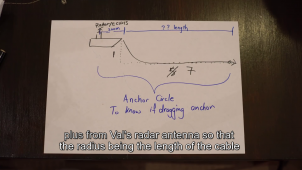 ?? length
5/8 7
Anchor Circle
To know if dragging anchor
plus from Val's radar antenna so that
the radius being the length of the cable